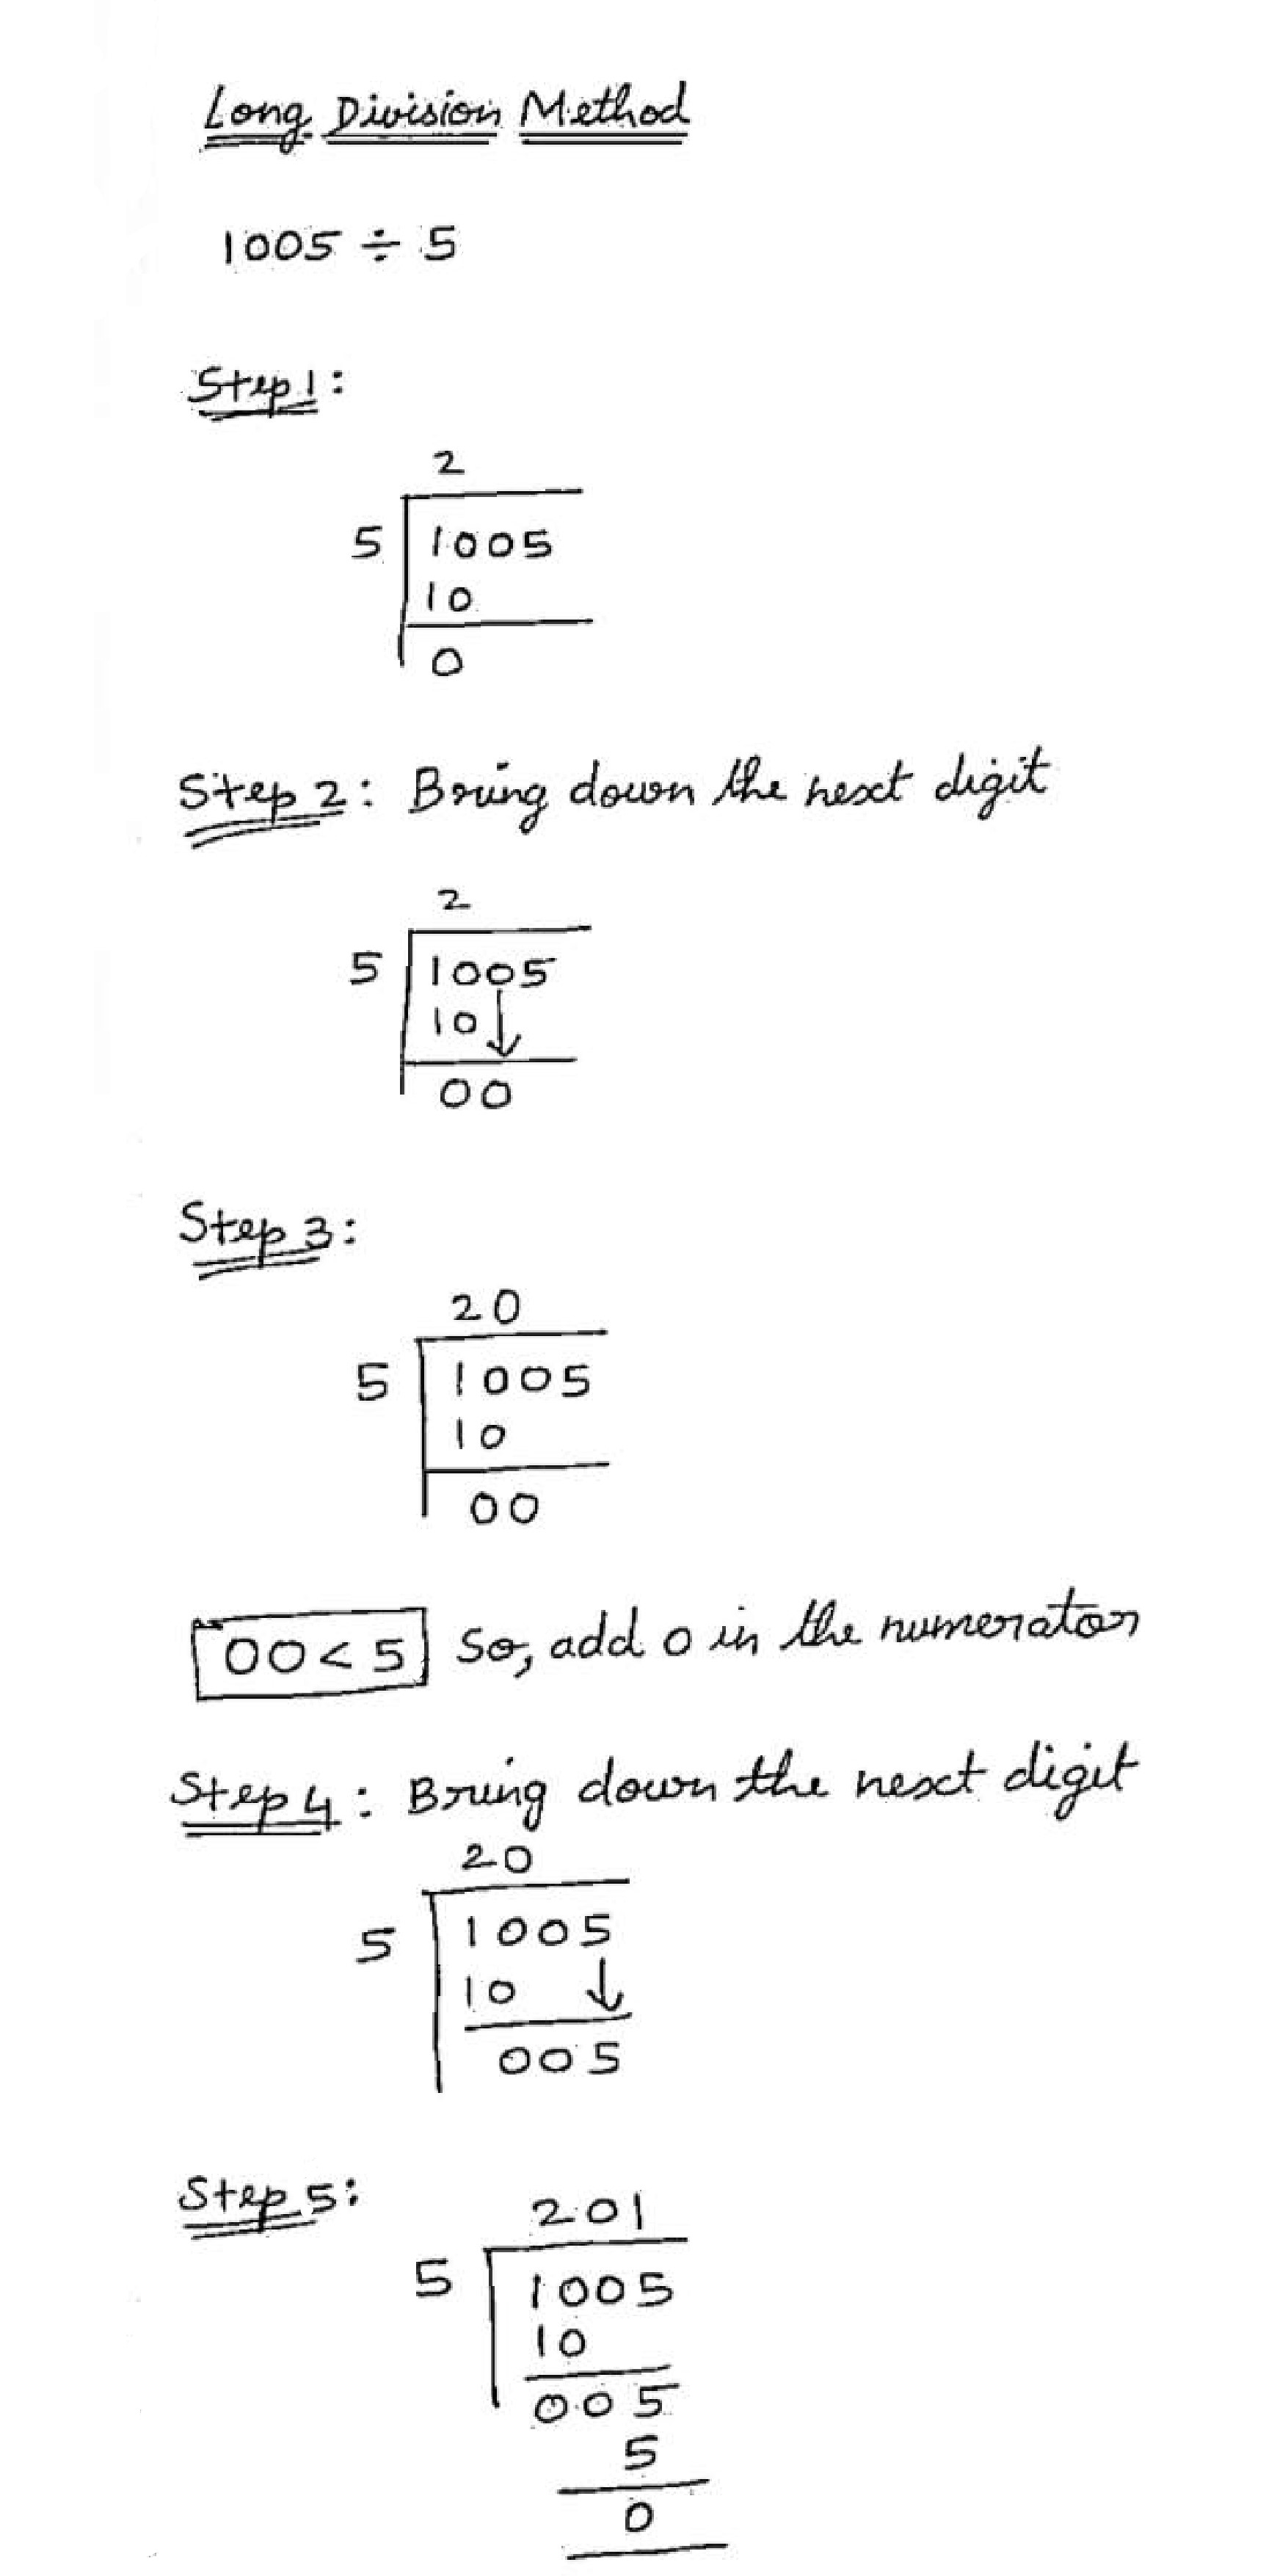 Long Division Method
1005 ÷ 5
Step 1:
2
5 1005
10
0
Step 2: Bring down the next digit
2
5 1005
10
00
Step 3:
20
5 1005
10
00
00 < 5 So, add 0 in the numerator
Step 4: Bring down the next digit
20
5 1005
10
005
Step 5:
201
5 1005
10
005
5
0